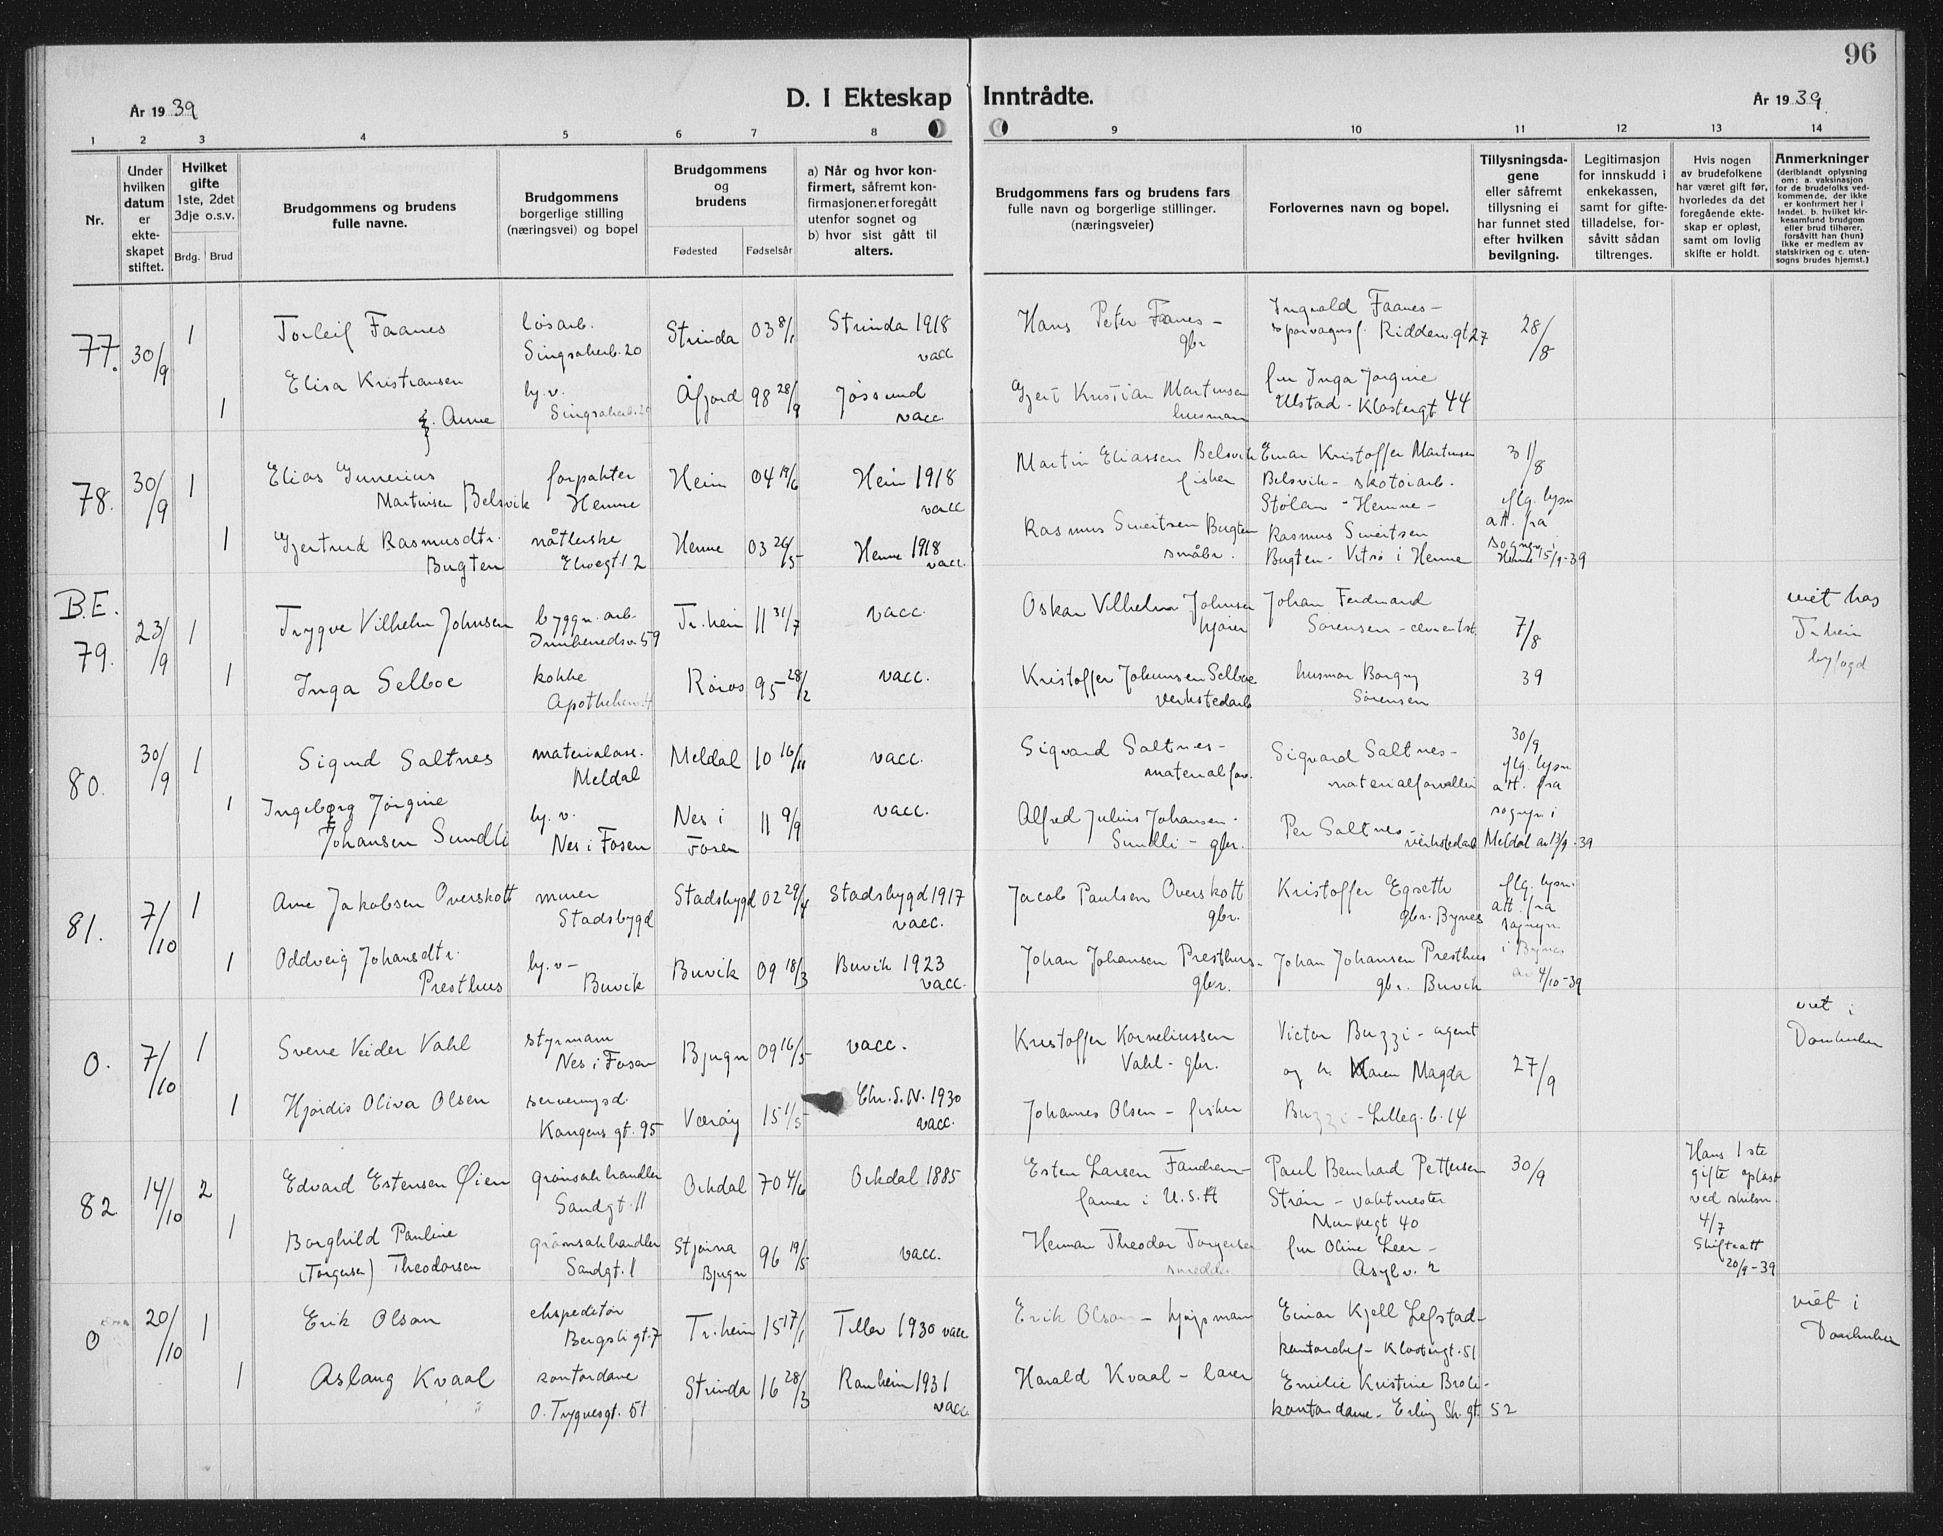 96
År 19 39
D. I Ekteskap Inntrådte.
År 19 39
1 2 3 4 5 6 7 8 9 10 11 12 13 14
Nr.
Under hvilken datum er ekteskapet stiftet.
Hvilket gifte 1ste, 2det 3dje o.s.v.
Brdg. Brud
Brudgommens og brudens fulle navne.
Brudgommens borgerlige stilling (næringsvei) og bopel
Brudgommens og brudens
Fødested Fødselsår
a) Når og hvor konfirmert, såfremt konfirmasjonen er foregått utenfor sognet og b) hvor sist gått til alters.
Brudgommens fars og brudens fars fulle navn og borgerlige stillinger. (næringsveier)
Forlovernes navn og bopel.
Tillysningsdagene eller såfremt tillysning ei har funnet sted efter hvilken bevilgning.
Legitimasjon for innskudd i enkekassen, samt for giftetilladelse, forsåvitt sådan tiltrenges.
Hvis nogen av brudefolkene har været gift før, hvorledes da det foregående ekteskap er opløst, samt om lovlig skifte er holdt.
Anmerkninger (deriblandt oplysning om: a. vaksinasjon for de brudefolks vedkommende, der ikke er konfirmert her i landet. b. hvilket kirkesamfund brudgom eller brud tilhører, forsåvitt han (hun) ikke er medlem av statskirken og c. utensogns brudes hjemst.)
77. 30/9 1 Torleif Faanes løsarb. Strinda 03 8/1 Strinda 1918 vacc Hans Peter Faanes - gbr Ingvald Faanes - 28/8
Singsakerb. 20
1 Elisa Kristiansen f. Aune hj.v. Åfjord 98 28/9 Jøssund vacc. Gjert Kristian Martinsen husmann fru Inga Jørgine Ulstad - Klostergt 44
78. 30/9 1 Elias Gunerius Martinsen Belsvik forpakter Hemne Heim 04 19/6 Heim 1918 vacc Martin Eliassen Belsvik fisker Einar Kristoffer Martinsen Belsvik - skotøiarb. Stølan - Hemne - 31/8
iflg. lysn att. fra sognepr. i Hemne 15/9-39
1 Gjertrud Rasmusdtr. Bugten nåtlerske Elvegt. 12 Hemne 03 26/5 Hemne 1918 vacc. Rasmus Sivertsen Bugten småbr. Rasmus Sivertsen Bugten - Vitsø i Hemne
B.E.
79. 23/9 1 Trygve Vilhelm Johnsen byggn. arb. Tr.heim 11 31/7 vacc. Oskar Vilhelm Johnsen kjører Johan Ferdinand Sørensen - cementst. 7/8 viet hos Tr.heim byfogd
1 Inga Selboe kokke Røros 95 28/2 vacc. Kristoffer Johannsen Selboe verkstedarb husmor Borgny Sørensen 39
80. 30/9 1 Sigurd Saltnes materialass. Meldal Meldal 10 16/11 vacc. Sigvard Saltnes - materialforv. Sigvard Saltnes - materialforvalter 30/9
iflg. lysn att. fra sognpr i Meldal av 13/9-39
1 Ingeborg Jørgine Johansen Sundli hj. v. Nes i Fosen Nes i Fosen 11 9/9 vacc. Alfred Julius Johansen - Sundli - gbr. Per Saltnes - verkstedarb
81. 7/10 1 Arne Jakobsen Overskott murer Stadsbygd Stadsbygd 02 29/4 Stadsbygd 1917 vacc. Jacob Paulsen Overskott gbr. Kristoffer Egseth gbr. Bynes iflg. lysn. att. fra sognepr. i Bynes av 4/10-39
1 Oddveig Johansdtr. Presthus hj.v - Buvik Buvik 09 18/3 Buvik 1923 vacc. Johan Johansen Presthus - gbr. Johan Johansen Presthus gbr. Buvik
0. 7/10 1 Sverre Veider Vahl styrmann Nes i Fosen Bjugn 09 16/5 vacc. Kristoffer Korneliussen Vahl - gbr. Victor Buzzi - agent og h. Karen Magda Buzzi - Lilleg. b. 14 27/9 viet i Domkirken
1 Hjørdis Oliva Olsen serveringsd. Kongens gt. 95 Værøy 15 1/5 Chr.S.N. 1930 vacc. Johannes Olsen - fisker
82 14/10 2 Edvard Estensen Øien grønsakhandler Sandgt. 11 Orkdal 70 4/6 Orkdal 1885 Esten Larsen Fandrem - farmer i U.S.A Paul Bernhard Pettersen Strøm - vaktmester Munkegt 40 30/9
Hans 1ste gifte opløst ved skilsm. 4/7 Skifteatt 20/9-39
1 Borghild Pauline (Torgersen) Theodorsen grønsakhandler Sandgt. 1 Stjørna Bjugn 96 19/5 vacc. Herman Theodor Torgersen smed fru Oline Leer - Asylv. 2
0 20/10 1 Erik Olson ekspeditør Bergsligt. 7 Tr.heim 15 17/1 Tiller 1930 vacc Erik Olson - kjøpmann Einar Kjell Lefstad - kontorchef - Klostergt. 51 viet i Domkirken
1 Aslaug Kvaal kontordame O. Trygvesgt. 51 Strinda 16 28/3 Ranheim 1931 vacc. Harald Kvaal - lærer Emilie Kristine Broli - kontordame - Erling Sk. gt. 52